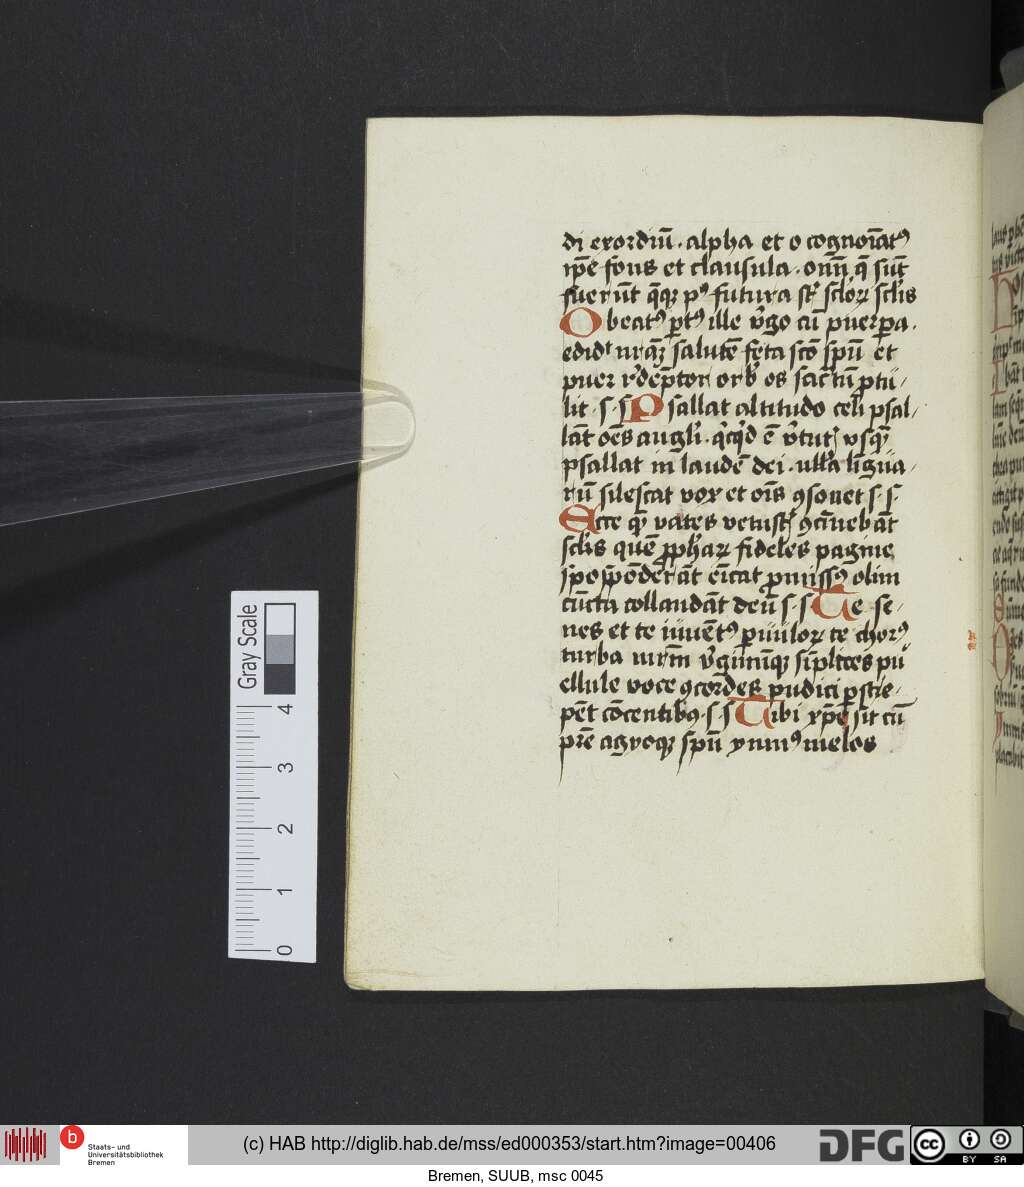 di exordiū · alpha et o cognoīat⁹
ip̄e fons et clausula · om̄ q̄ sūt
fuerūt q̄qꝫ p⁹ futura st̄ sclōꝝ scl̄is
O beat⁹ ꝑt⁹ ille v̓go cū puerꝑa ·
edidᵗ nr̄aꝫ salutē feta scō sp̄ū et
puer r̓dēptor orb̓ os sac̄tū ꝓtu-
lit · s · s Psallat altitudo celi psal-
lāt oēs angl̓i · q̓cq̓d ē v̓tutꝭ vsqꝫ
psallat in laudē dei · ulla līgua-
rū silescat vox et oīs ꝯsonet s · s ·
Ecce quē vates vetustꝭ ꝯcinebāt
scl̄is quē ꝓph̄aꝝ fideles pagine
spospōderāt em̄cat ꝓmiss⁹ olim
cūcta collaudāt deū s · s Te se-
nes et te iuuēt⁹ ꝑuuloꝝ te chor⁹
turba mr̄m v̓ginūqꝫ sīplices pu
ellule voce ꝯcordes pudici ꝑstre-
pēt cōcentibꝰ · s · s Tibi xp̄e sit cū
pr̄e agyoqꝫ sp̄ū ymn⁹ melos
Gray Scale
4
3
2
1
0
b
Staats- und
Universitätsbibliothek
Bremen
(c) HAB http://diglib.hab.de/mss/ed000353/start.htm?image=00406
DFG
cc
BY SA
Bremen, SUUB, msc 0045